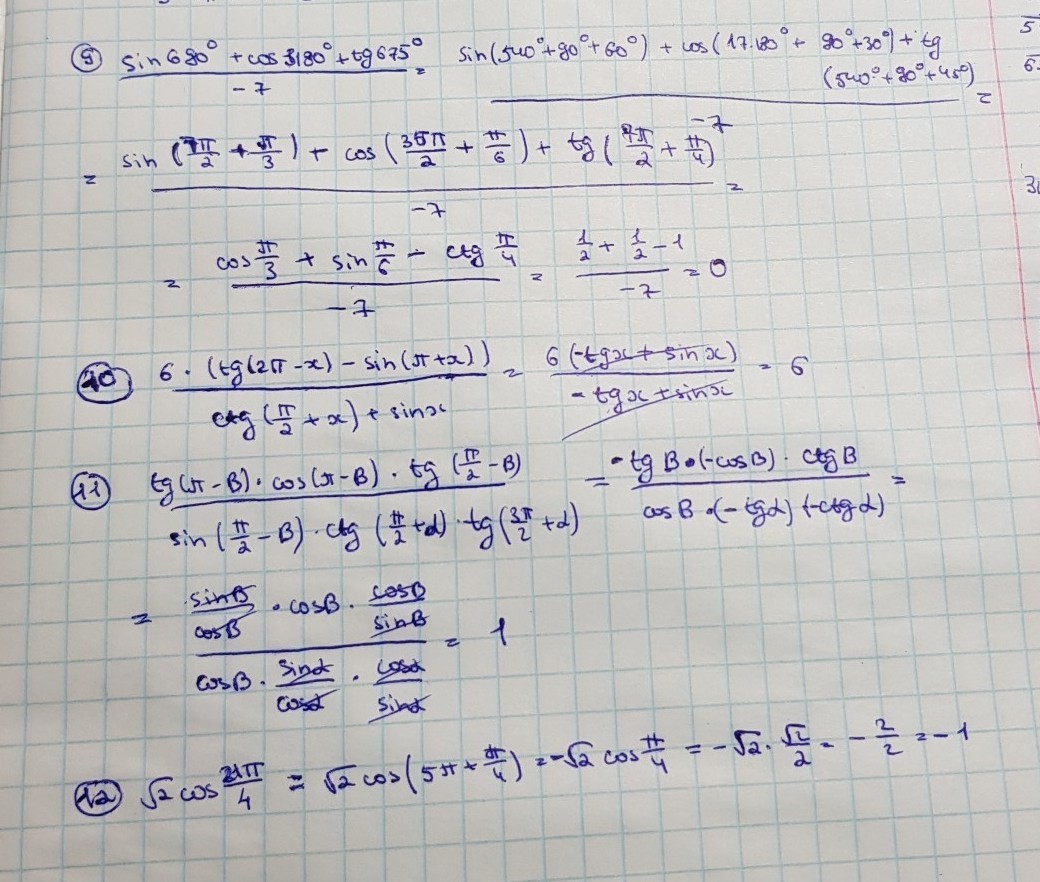 9) (sin 690° + cos 3180° + tg 675°) / -7 = (sin(540° + 90° + 60°) + cos(17·180° + 90° + 30°) + tg (540° + 90° + 45°)) / -7 =
= (sin (7π/2 + π/3) + cos (35π/2 + π/6) + tg (7π/2 + π/4)) / -7 =
= (cos π/3 + sin π/6 - ctg π/4) / -7 = (1/2 + 1/2 - 1) / -7 = 0
10) 6 · (tg(2π - x) - sin(π + x)) / (ctg (π/2 + x) + sin x) = 6 (-tg x + sin x) / (-tg x + sin x) = 6
11) (tg(π - B) · cos(π - B) · tg (π/2 - B)) / (sin (π/2 - B) · ctg (π/2 + α) · tg (3π/2 + α)) = (-tg B · (-cos B) · ctg B) / (cos B · (-tg α) (-ctg α)) =
= (sin B / cos B · cos B · cos B / sin B) / (cos B · sin α / cos α · cos α / sin α) = 1
12) √2 cos 21π/4 = √2 cos (5π + π/4) = -√2 cos π/4 = -√2 · √2/2 = -2/2 = -1